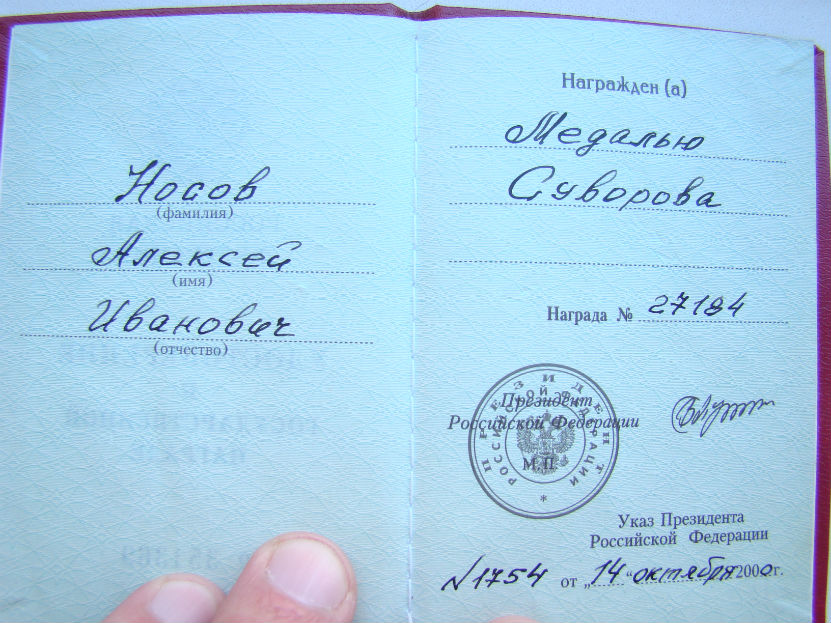 Носов
(фамилия)
Алексей
(имя)
Иванович
(отчество)
Награжден (а)
Медалью
Суворова
Награда № 27184
ПРЕЗИДЕНТ
РОССИЙСКОЙ ФЕДЕРАЦИИ
Президент
Российской Федерации
М.П.
Указ Президента
Российской Федерации
№1754 от „14“ октября 2000г.